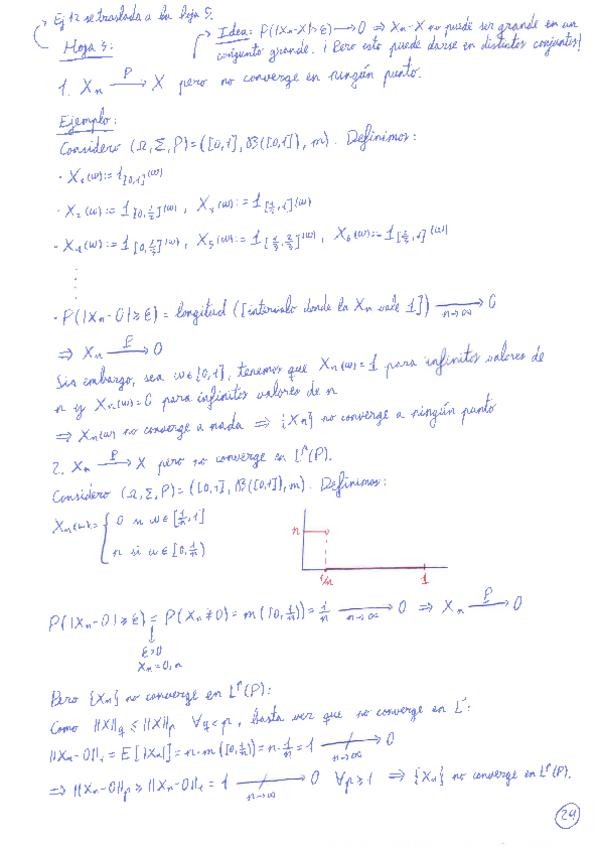 Ej 12 se traslada a la hoja 5.
Hoja 3:
Idea: P(|Xn-X|>ε)→0 ⇒ Xn-X no puede ser grande en un
conjunto grande. ¡Pero esto puede darse en distintos conjuntos!
1. Xn —P→ X pero no converge en ningún punto.
Ejemplo:
Considero (Ω,Σ,P)=([0,1],B([0,1]),m). Definimos:
· X₁(ω):=1[0,1](ω)
· X₂(ω):=1[0,1/2](ω), X₃(ω):=1[1/2,1](ω)
· X₄(ω):=1[0,1/3](ω), X₅(ω):=1[1/3,2/3](ω), X₆(ω):=1[2/3,1](ω)
⋮
· P(|Xn-0|≥ε) = longitud ([intervalo donde la Xn vale 1]) —n→∞→ 0
⇒ Xn —P→ 0
Sin embargo, sea ω∈[0,1], tenemos que Xn(ω)=1 para infinitos valores de
n y Xn(ω)=0 para infinitos valores de n
⇒ Xn(ω) no converge a nada ⇒ {Xn} no converge a ningún punto
2. Xn —P→ X pero no converge en Lᵖ(P).
Considero (Ω,Σ,P)=([0,1],B([0,1]),m). Definimos:
Xn(ω)= { 0 si ω∈[1/n,1]
n si ω∈[0,1/n)
n
1/n 1
P(|Xn-0|≥ε) = P(Xn≠0) = m([0,1/n)) = 1/n —n→∞→ 0 ⇒ Xn —P→ 0
↓
ε>0
Xn=0,n
Pero {Xn} no converge en Lᵖ(P):
Como ||X||q ≤ ||X||p ∀q<p, basta ver que no converge en L¹:
||Xn-0||₁ = E[|Xn|] = n·m([0,1/n)) = n·1/n = 1 —/n→∞→ 0
⇒ ||Xn-0||p ≥ ||Xn-0||₁ = 1 —/n→∞→ 0 ∀p≥1 ⇒ {Xn} no converge en Lᵖ(P).
24